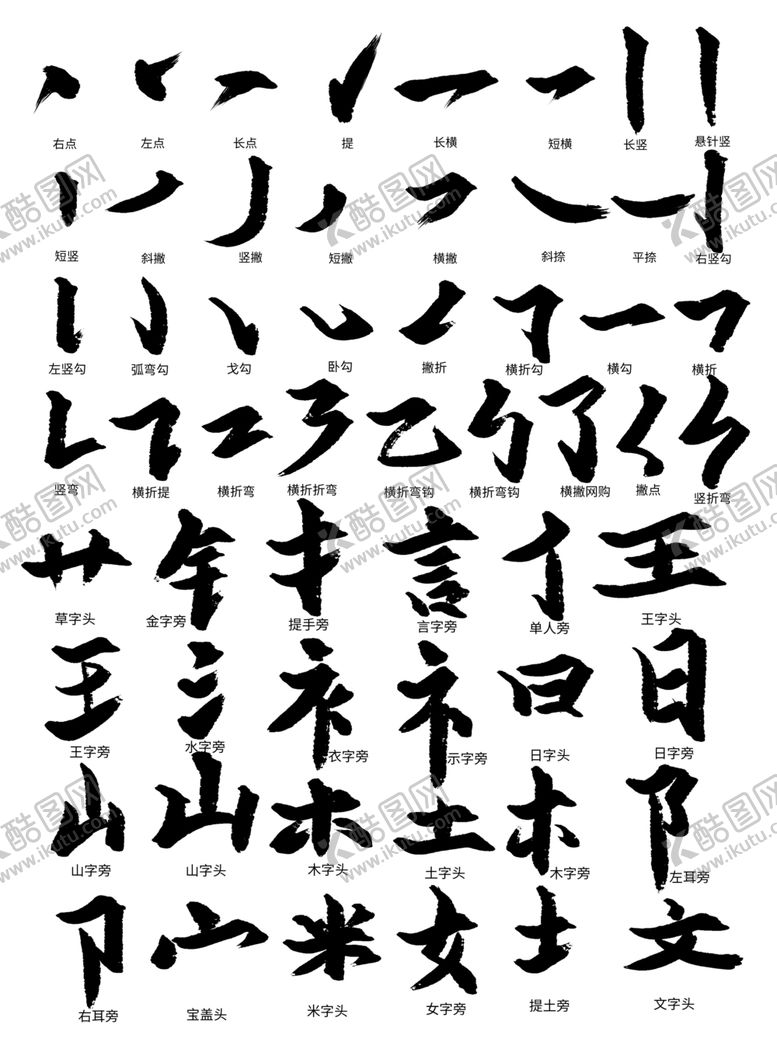 右点 左点 长点 提 长横 短横 长竖 悬针竖
短竖 斜撇 竖撇 短撇 横撇 斜捺 平捺 右竖勾
左竖勾 弧弯勾 戈勾 卧勾 撇折 横折勾 横勾 横折
竖弯 横折提 横折弯 横折折弯 横折弯钩 横折弯钩 横撇网购 撇点 竖折弯
草字头 金字旁 提手旁 言字旁 单人旁 王字头
王字旁 水字旁 衣字旁 示字旁 日字头 日字旁
山字旁 山字头 木字头 土字头 木字旁 左耳旁
右耳旁 宝盖头 米字头 女字旁 提土旁 文字头
酷图网
www.ikutu.com